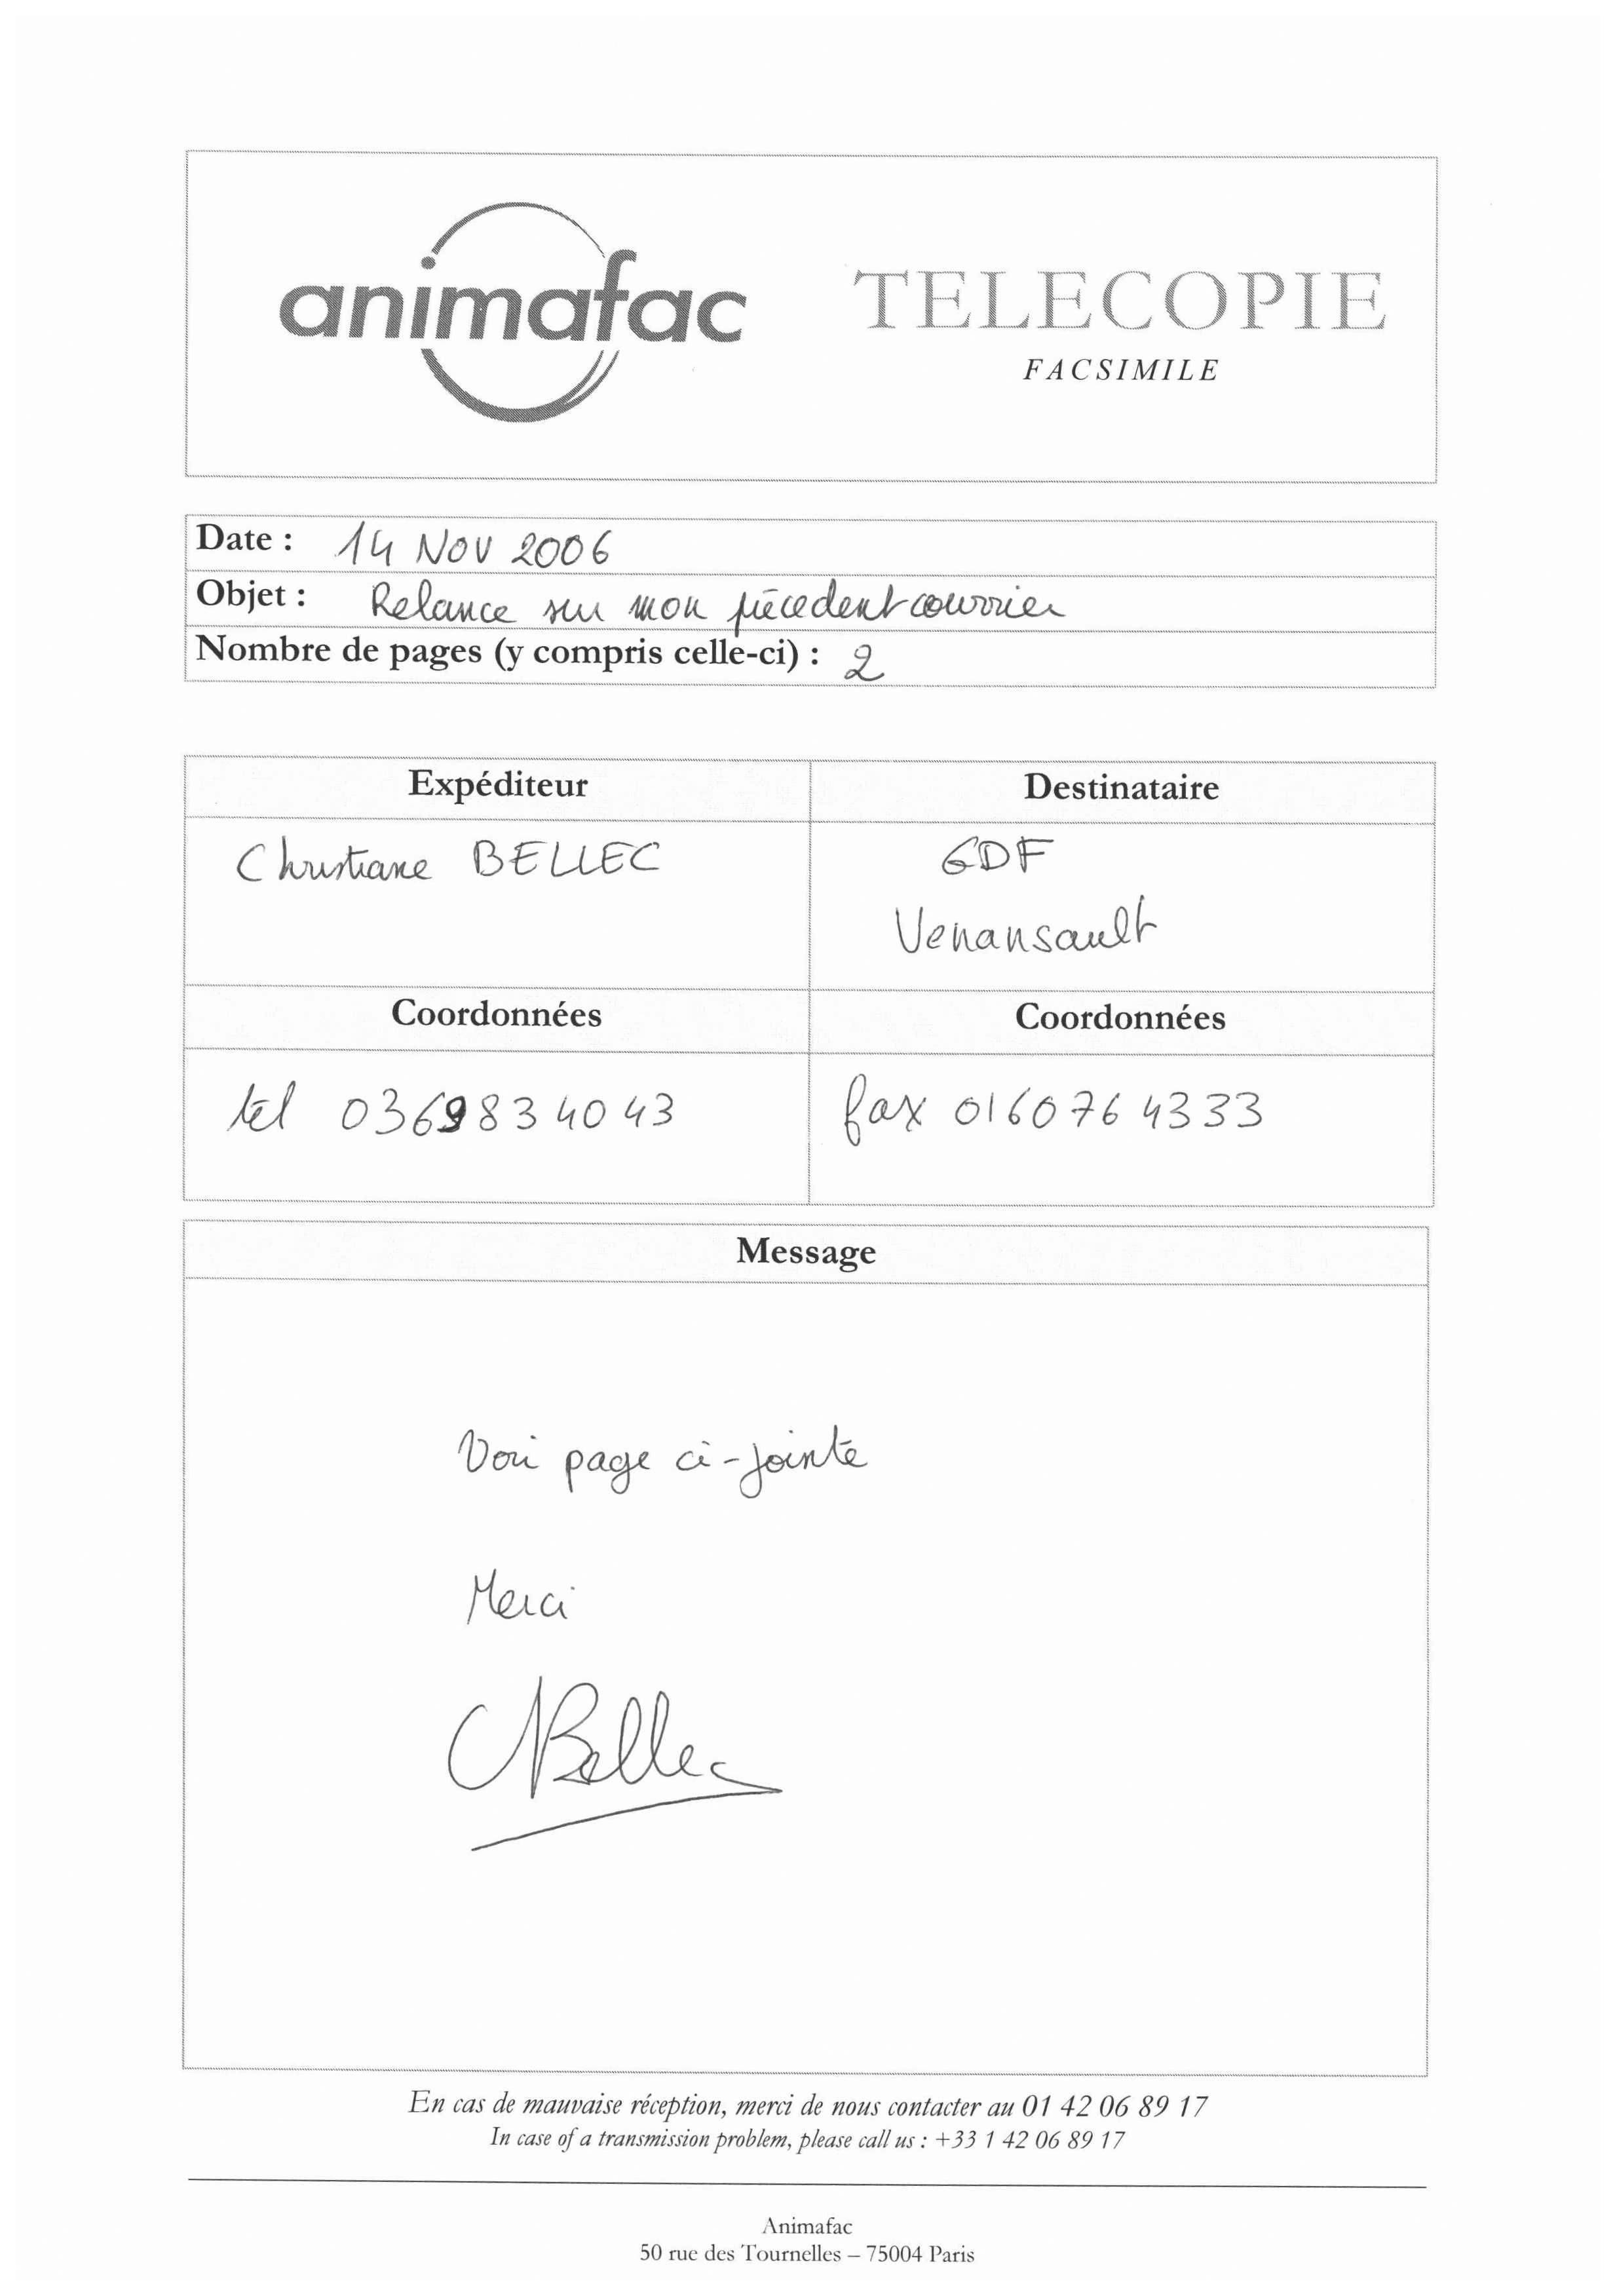 animafac
TELECOPIE
FACSIMILE
Date : 14 NOV 2006
Objet : Relance sur mon précedent courrier
Nombre de pages (y compris celle-ci) : 2
Expéditeur
Destinataire
Christiane BELLEC
GDF
Venansault
Coordonnées
Coordonnées
tel 0369834043
fax 0160764333
Message
Voir page ci-jointe
Merci
CBellec
En cas de mauvaise réception, merci de nous contacter au 01 42 06 89 17
In case of a transmission problem, please call us : +33 1 42 06 89 17
Animafac
50 rue des Tournelles – 75004 Paris